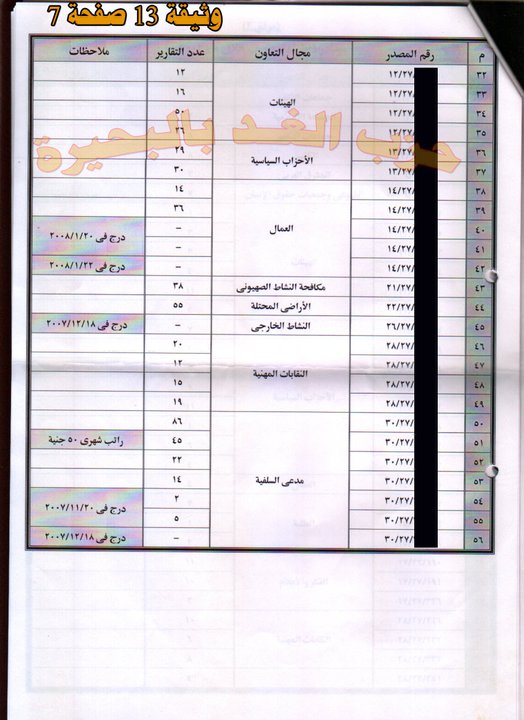 وثيقة 13 صفحة 7
م رقم المصدر مجال التعاون عدد التقارير ملاحظات
٣٢ ١٢/٢٧/ ١٢
٣٣ ١٢/٢٧/ ١٦
الهيئات
٣٤ ١٢/٢٧/ ٥٠
٣٥ ١٢/٢٧/ ٢٦
حزب الغد بالبحيرة
٣٦ ١٣/٢٧/ ٢٩
الأحزاب السياسية
٣٧ ١٣/٢٧/ ٣٠
٣٨ ١٤/٢٧/ ١٤
٣٩ ١٤/٢٧/ ٣٦
٤٠ ١٤/٢٧/ العمال –
درج فى ٢٠٠٨/١/٢٠
٤١ ١٤/٢٧/ –
٤٢ ١٤/٢٧/ – درج فى ٢٠٠٨/١/٢٢
٤٣ ٢١/٢٧/ مكافحة النشاط الصهيونى ٣٨
٤٤ ٢٢/٢٧/ الأراضى المحتلة ٥٥
٤٥ ٢٦/٢٧/ النشاط الخارجى – درج فى ٢٠٠٧/١٢/١٨
٤٦ ٢٨/٢٧/ ٢٠
٤٧ ٢٨/٢٧/ ١٢
النقابات المهنية
٤٨ ٢٨/٢٧/ ١٥
٤٩ ٢٨/٢٧/ ١٩
٥٠ ٣٠/٢٧/ ٨٦
٥١ ٣٠/٢٧/ ٤٥ راتب شهرى ٥٠ جنية
٥٢ ٣٠/٢٧/ ٢٢
٥٣ ٣٠/٢٧/ مدعى السلفية ١٤
٥٤ ٣٠/٢٧/ ٢
درج فى ٢٠٠٧/١١/٢٠
٥٥ ٣٠/٢٧/ ٥
٥٦ ٣٠/٢٧/ – درج فى ٢٠٠٧/١٢/١٨